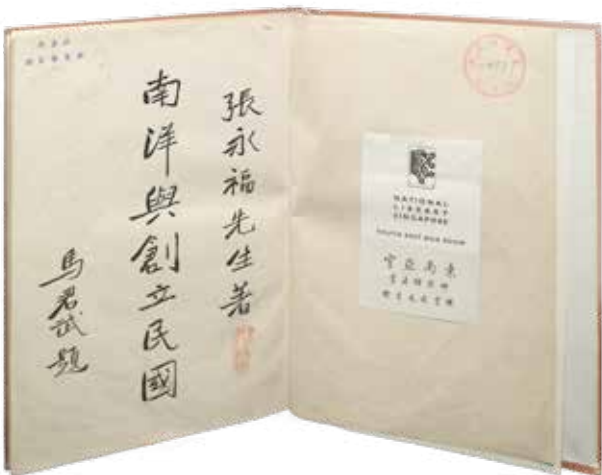 張永福先生著
南洋與創立民國
馬君武題
NATIONAL
LIBRARY
SINGAPORE
SOUTH EAST ASIA ROOM
東南亞室